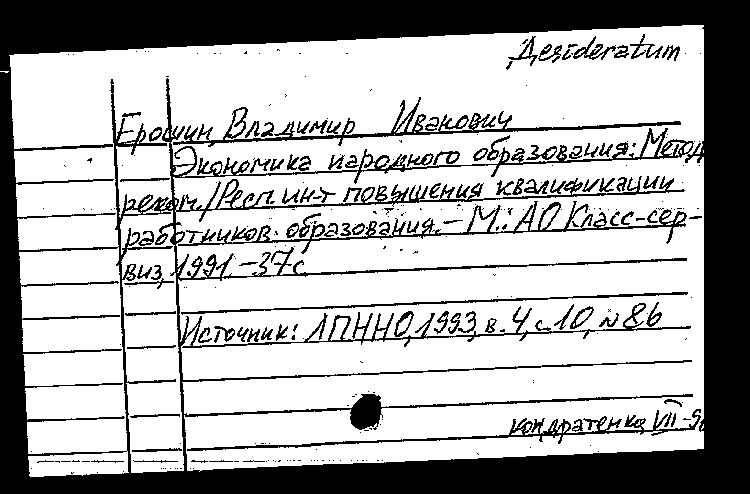 Дезideratum
Ерошин, Владимир Иванович
Экономика народного образования: Метод.
реком. / Респ. ин-т повышения квалификации
работников образования. – М.: АО Класс-сер-
виз, 1991. – 37 с.
Источник: ЛПННО, 1993, в. 4, с. 10, № 86
Кондратенко, VII-9